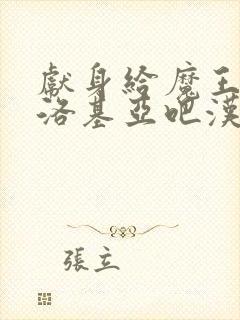 獻身給魔王
洛基亞吧漢
張立